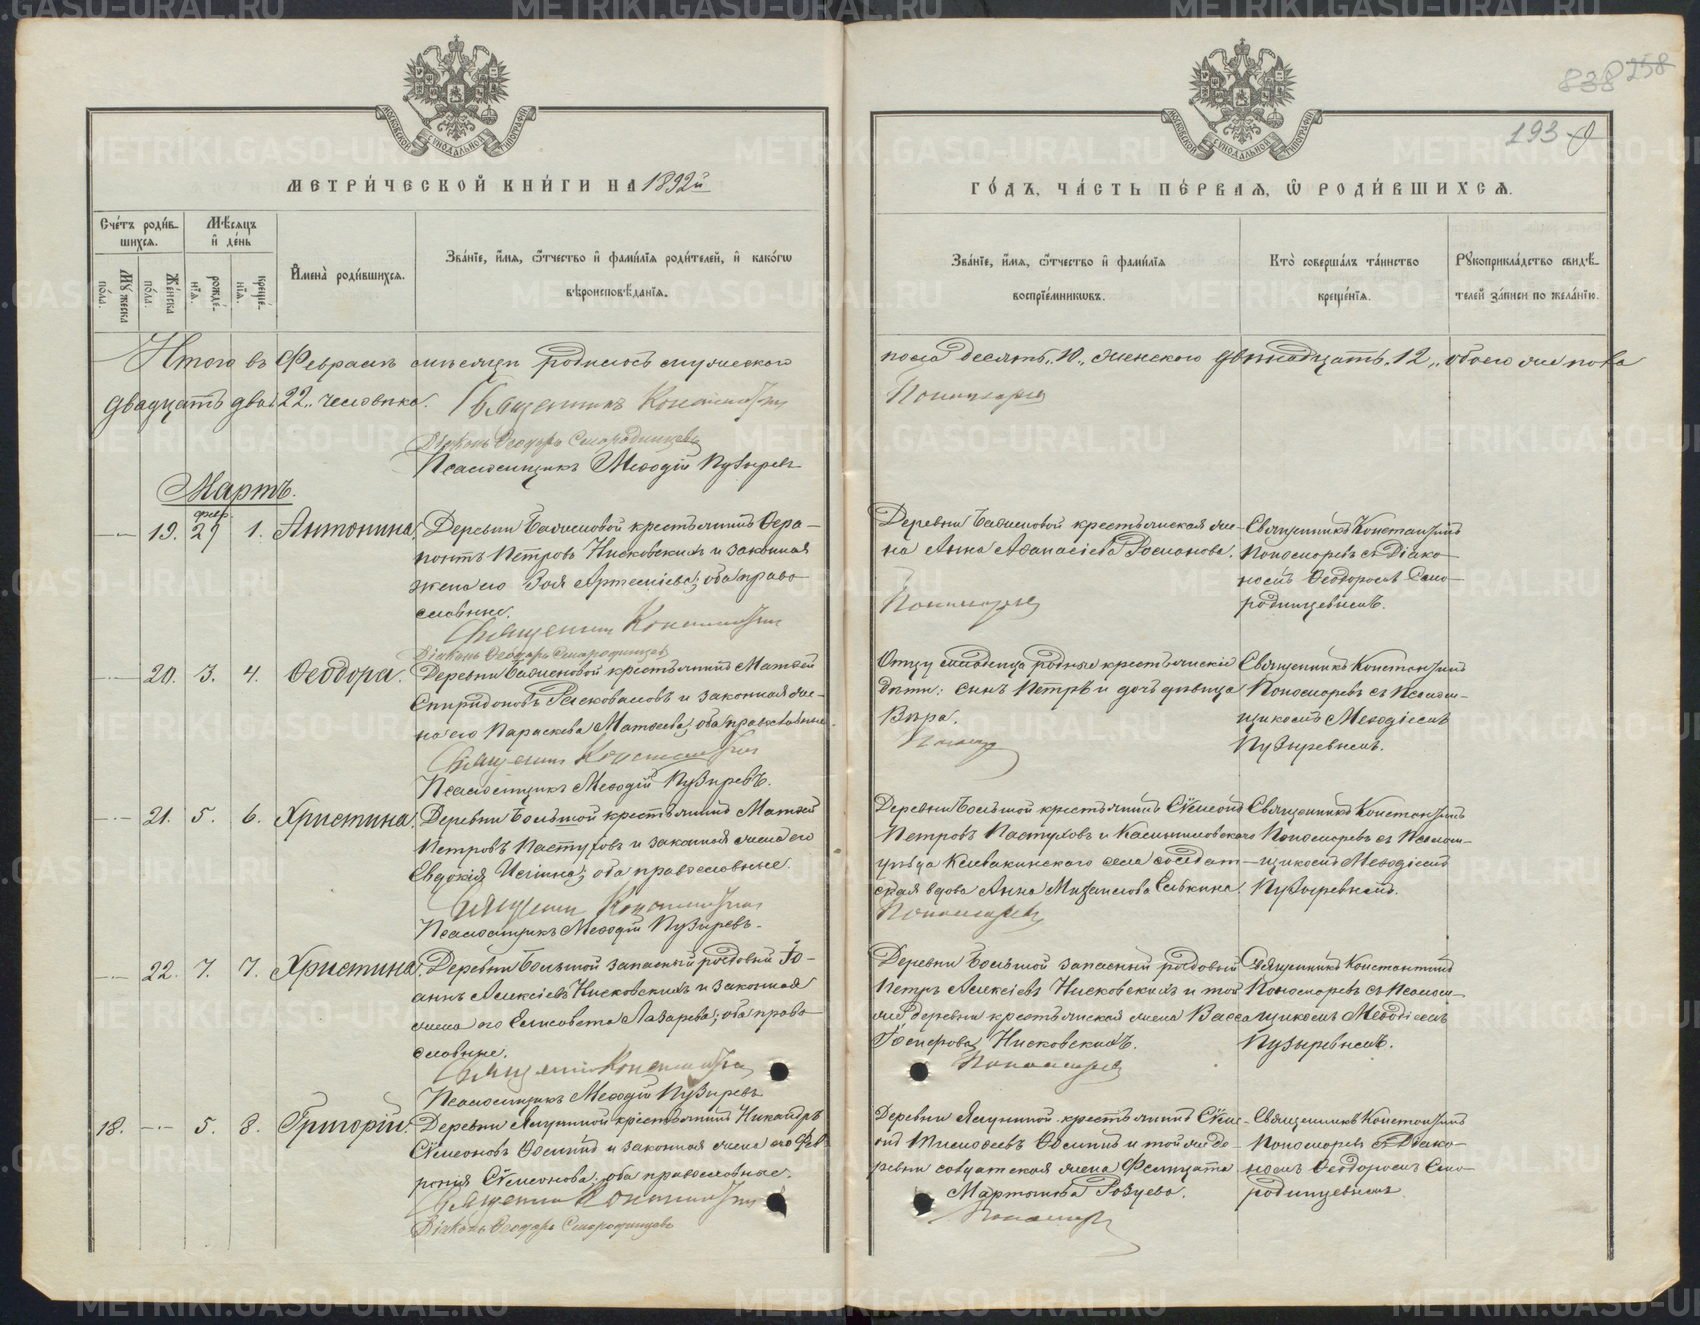 838 258
193
МЕТРИ́ЧЕСКОЙ КНИ́ГИ НА 1892й
ГО́ДЪ, ЧА́СТЬ ПЕ́РВАЯ, Ѡ РОДИ́ВШИХСЯ.
Сче́тъ роди́в-
шихся.
Мѣ́сяцъ
и де́нь
Му́жеска по́ла.
Же́нска по́ла.
рожде́-
нїя.
креще́-
нїя.
Имена̀ роди́вшихся.
Зва́нїе, и́мя, ѻ́тчество и фами́лїя роди́телей, и како́гѡ
вѣроисповѣ́данїя.
Зва́нїе, и́мя, ѻ́тчество и фами́лїя
воспрїе́мникѡвъ.
Кто̀ соверша́лъ та́инство
креще́нїя.
Рукоприкла́дство свидѣ́-
телей за́писи по жела́нїю.
Итого въ Февралѣ мѣсяцѣ родилось мужескаго
пола десять „10„ женскаго двѣнадцать „12„ обоего же пола
двадцать два „22„ человѣка. Священникъ Константинъ
Пономаревъ
Дїаконъ Ѳеодоръ Смородинцевъ
Псаломщикъ Меѳодїй Пузыревъ
Мартъ.
19. фев. 29 1. Антонина.
Деревни
крестьянинъ Ѳера-
понтъ Петровъ Нисковскихъ и законная
жена его Зоя Артемїева; оба право-
славные.
Священникъ Константинъ
Дїаконъ Ѳеодоръ Смородинцевъ
Деревни
крестьянская же-
на Анна Аѳанасїева
Пономаревъ
Священникъ Константинъ
Пономаревъ съ Дїако-
номъ Ѳеодоромъ Смо-
родинцевымъ.
20. 3. 4. Ѳеодора.
Деревни
крестьянинъ Матѳей
Спиридоновъ
и законная же-
на его Параскева Матѳеева; оба православные.
Священникъ Константинъ
Псаломщикъ Меѳодїй Пузыревъ.
Отцу младенца родные крестьянскїе
дѣти: сынъ Петръ и дочь дѣвица
Вѣра.
Священникъ Константинъ
Пономаревъ съ Псалом-
щикомъ Меѳодїемъ
Пузыревымъ.
21. 5. 6. Христина.
Деревни Большой крестьянинъ Матѳей
Петровъ Пастуховъ и законная жена его
Евдокїя
оба православные.
Священникъ Константинъ
Псаломщикъ Меѳодїй Пузыревъ.
Деревни Большой крестьянинъ Сѷмеонъ
Петровъ Пастуховъ и Камышловскаго
уѣзда Клевакинскаго села солдат-
ская вдова Анна Михаилова
Пономаревъ
Священникъ Константинъ
Пономаревъ съ Псалом-
щикомъ Меѳодїемъ
Пузыревымъ.
22. 7. 7. Христина.
Деревни Большой запасный рядовый Їо-
аннъ Алексїевъ Нисковскихъ и законная
жена его Елисавета Лазарева; оба право-
славные.
Священникъ Константинъ
Псаломщикъ Меѳодїй Пузыревъ
Деревни Большой запасный рядовый
Петръ Алексїевъ Нисковскихъ и той
же деревни крестьянская жена Васса
Їосифова Нисковскихъ.
Пономаревъ
Священникъ Константинъ
Пономаревъ съ Псалом-
щикомъ Меѳодїемъ
Пузыревымъ.
18. 5. 8. Григорїй.
Деревни Ялуниной крестьянинъ Никандръ
Сѷмеоновъ
и законная жена его Фев-
ронїя Сѷмеонова; оба православные.
Священникъ Константинъ
Дїаконъ Ѳеодоръ Смородинцевъ
Деревни Ялуниной крестьянинъ Сѷме-
онъ
и той же де-
ревни солдатская жена Фелицата
Мартинова
Пономаревъ
Священникъ Константинъ
Пономаревъ съ Дїако-
номъ Ѳеодоромъ Смо-
родинцевымъ.
METRIKI.GASO-URAL.RU